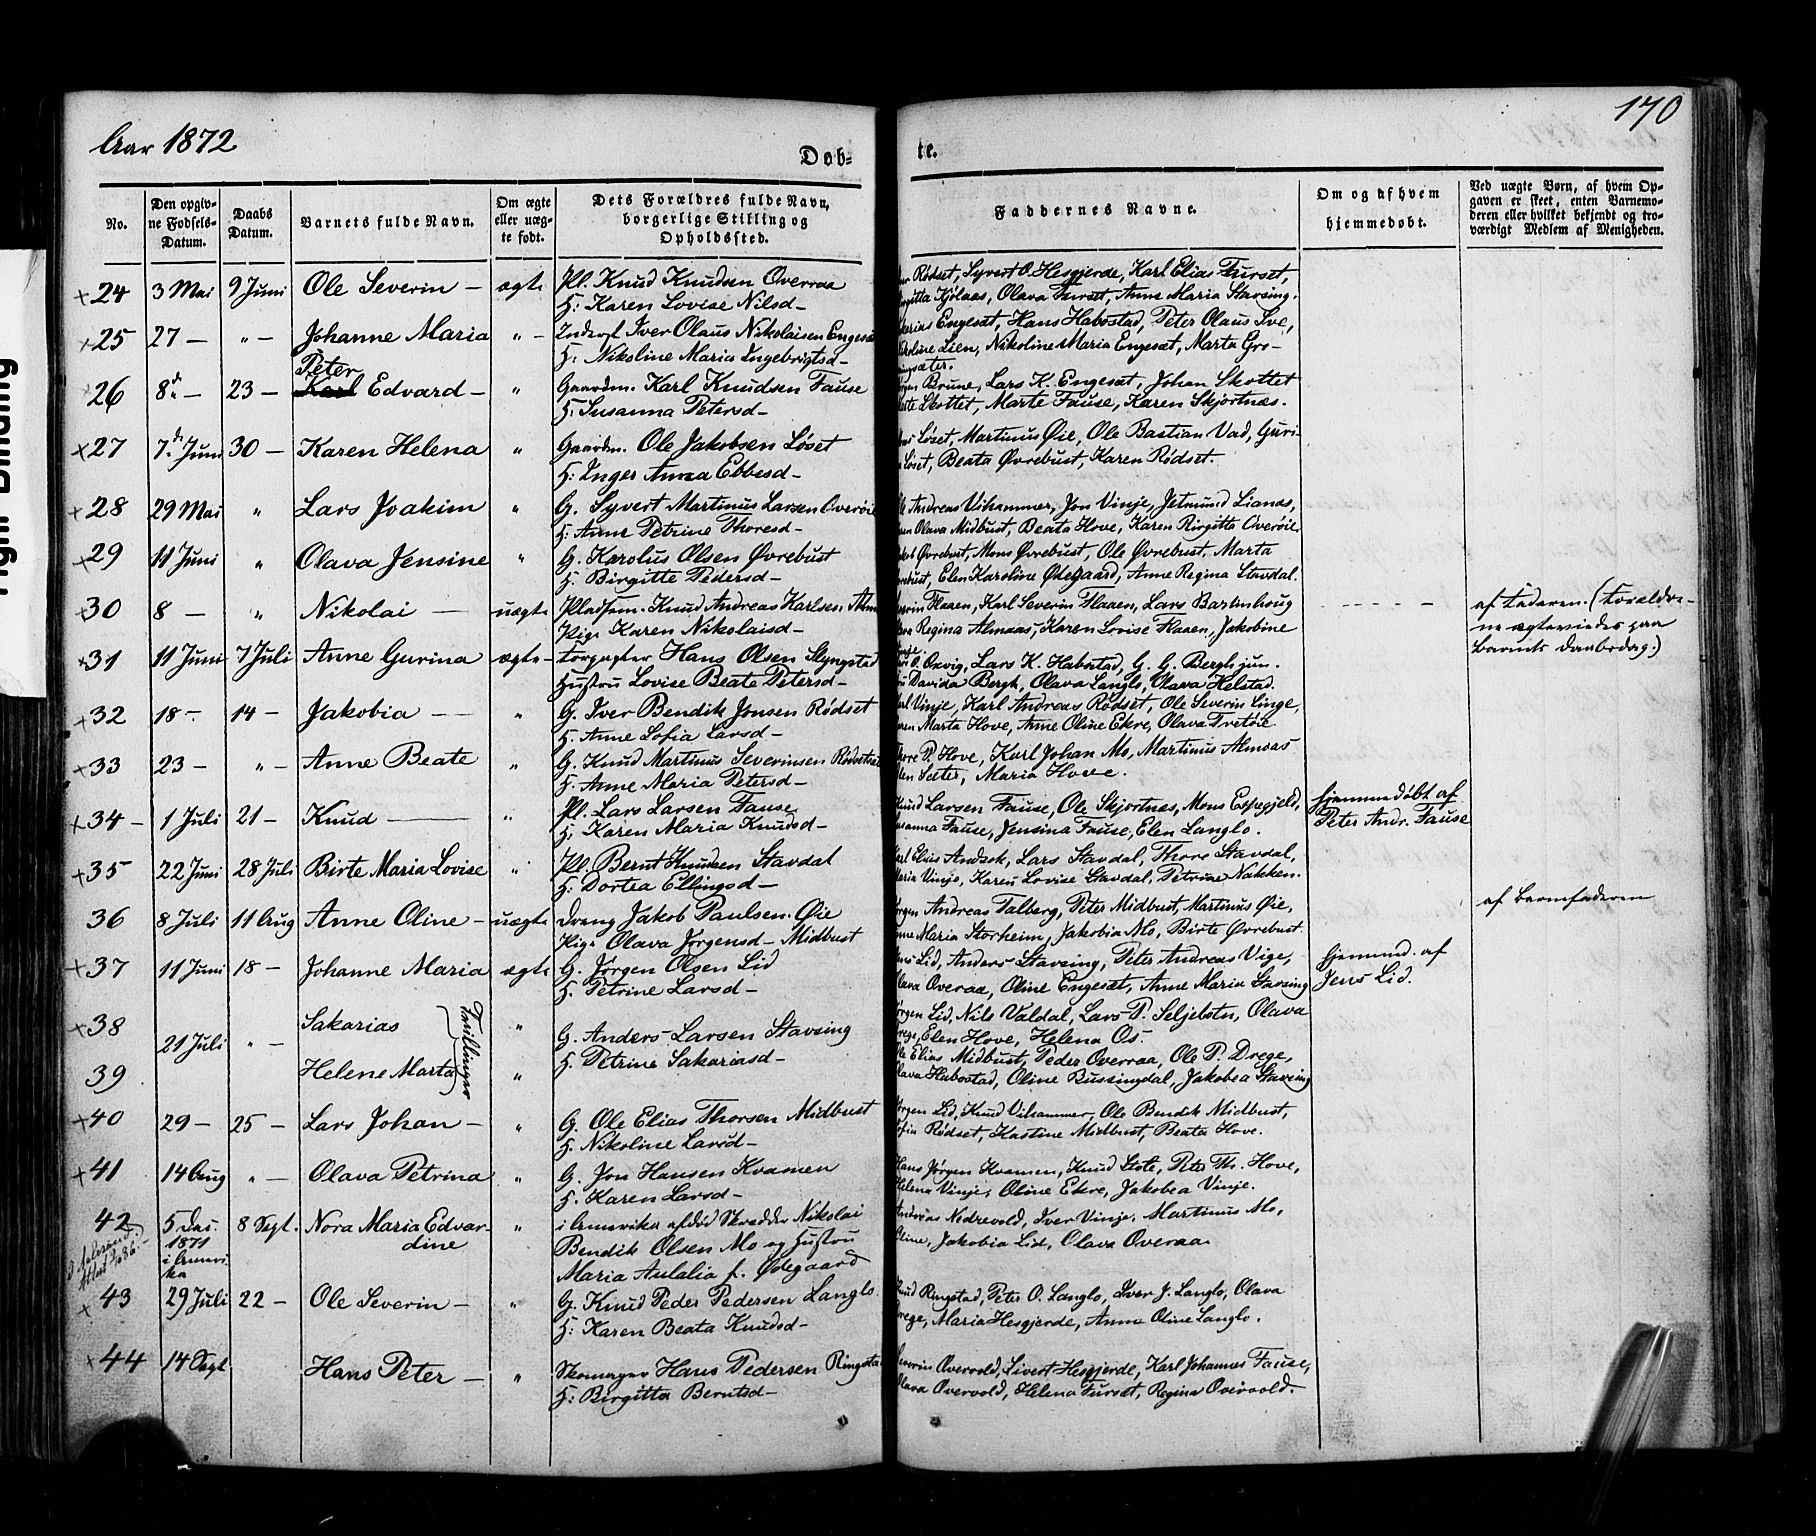 Aar 1872
170
Døb-
te.
No.
Den opgiv-
ne Fødsels-
Datum.
Daabs
Datum.
Barnets fulde Navn.
Om ægte
eller uæg-
te født.
Dets Forældres fulde Navn,
borgerlige Stilling og
Opholdssted.
Faddernes Navne.
Om og af hvem
hjemmedøbt.
Ved uægte Børn, af hvem Op-
gaven er skeet, enten Barnemo-
deren eller hvilket bekjendt og tro-
værdigt Medlem af Menigheden.
24 3 Mai 9 Juni Ole Severin - ægte Pl. Knud Knudsen Overraa
H: Karen Lovise Nilsd-
Rødset, Syvert O. Hesgjerde, Karl Elias Furset,
Kjölaas, Olava Furset, Anne Maria Stavsing.
25 27 - " - Johanne Maria " - Inderst Iver Olaus Nikolaisen
H: Nikoline Maria Ingebrigtsd-
Engeset, Hans Habostad, Peter Olaus Sve,
Lien, Nikoline Maria Engeset, Marta Gro-
sæter.
Peter
26 8de - 23 - Karl Edvard - " Gaardm. Karl Knudsen Fause
H: Susanna Petersd-
Brune, Lars K. Engesæt, Johan Skottet
Skottet, Marte Fause, Karen Skjortnæs.
27 7de Juni 30 - Karen Helena " Gaardm. Ole Jakobsen Løset
H: Inger Anna Ebbesd-
Løset, Martinus Øie, Ole Bastian Vad, Guri-
Løset, Beata Øvrebust, Karen Rødset.
28 29 Mai " Lars Joakim " G. Syvert Martinus Larsen Overøie
H: Anne Petrine Thoresd-
Andreas Vihammer, Jon Vinje, Jetmund Lianes,
Olava Midbust, Beata Hove, Karen Birgitta Overøie
29 11 Juni " Olava Jensine " G. Karolus Olsen Øvrebust
H. Birgitte Pedersd-
Øvrebust, Mons Øvrebust, Ole Øvrebust, Marta
Elen Karoline Ødegaard, Anne Regina Stavdal.
30 8 - " Nikolai - uægte Pladsm. Knud Andreas Karlsen
Pige Karen Nikolaisd-
Flaaen, Karl Severin Flaaen, Lars Barinhoug
Regina Almaas, Karen Lovise Flaaen, Jakobine
af Faderen. (Forældre-
ne ægteviedes paa
Barnets Daabsdag.)
31 11 Juni 7 Juli Anne Gurina ægte - Forpagter Hans Olsen Slyngstad
Hustru Lovise Beate Petersd-
Oxvig, Lars K. Habostad, G. G. Bergh jun.
Davida Bergh, Olava Langlo, Olava Helstad.
32 18 - 14 - Jakobia - " G. Iver Bendik Jonsen Rødset
H. Anne Sofia Larsd-
Vinje, Karl Andreas Rødset, Ole Severin Linge,
Marta Hove, Anne Oline Ekre, Olava Tretøie
33 23 - " - Anne Beate " G. Knud Martinus Severinsen
H. Anne Maria Petersd-
Thore P. Hove, Karl Johan Mo, Martinus Almaas
Sæter, Maria Hove.
34 - 1 Juli 21 - Knud - " Pl. Lars Larsen Fause
H: Karen Maria Knudsd-
Knud Larsen Fause, Ole Skjortnæs, Mons Espegjeld,
Susanna Fause, Jensina Fause, Elen Langlo.
Hjemmedøbt af
Peter Andr. Fause
35 22 Juni 28 Juli Birte Maria Lovise " Pl. Bernt Knudsen Stavdal
H: Dortea Ellingsd-
Karl Elias Andaek, Lars Stavdal, Thore Stavdal,
Maria Vinje, Karen Lovise Stavdal, Petrine Nakken.
36 8 Juli 11 Aug Anne Oline - uægte Dreng Jakob Paulsen Øie
Pige Olava Jørgensd- Midbust
Jørgen Andreas Talberg, Peter Midbust, Martinus Øie,
Maria Storheim, Jakobia Mo, Birte Øvrebust.
af Barnefaderen
37 11 Juni 18 - Johanne Maria ægte G. Jørgen Olsen Lid
H. Petrine Larsd-
Jens Lid, Anders Stavsing, Peter Andreas Vige,
Olava Overaa, Oline Engesæt, Anne Maria Stavsing
Hjemmed. af
Jens Lid.
38 21 Juli " - Sakarias Tvillinger " G. Anders Larsen Stavsing
H. Petrine Sakariasd-
Jørgen Lid, Nils Valdal, Lars P. Seljebotn, Olava
Drege, Elen Hove, Helena Os.
39 Helene Marta "
Ole Elias Midbust, Peder Overraa, Ole P. Drege,
Olava Habostad, Oline Bussingdal, Jakobea Stavsing
40 29 - 25 - Lars Johan - " G. Ole Elias Thorsen Midbust
H. Nikoline Larsd-
Jørgen Lid, Knud Vihammer, Ole Bendik Midbust,
Sofia Rødset, Kastine Midbust, Beata Hove.
41 14 Aug " - Olava Petrina " G. Jon Hansen Kvamen
H. Karen Larsd-
Hans Jørgen Kvamen, Knud Stole, Peter Th. Hove,
Helena Vinje, Oline Ekre, Jakobea Vinje.
42 5 Des. 1871 i Amerika 8 Sept. Nora Maria Edvar-
dine " i Amerika afdød Skrædder Nikolai
Bendik Olsen Mo og Hustru
Maria Aulalia f. Ødegaard
Andreas Nedrevold, Iver Vinje, Martinus Mo,
Oline, Jakobia Lid, Olava Overaa.
43 29 Juli 22 - Ole Severin - " G. Knud Peder Pedersen Langlo
H: Karen Beata Knudsd-
Knud Ringstad, Peter O. Langlo, Iver J. Langlo, Olava
Drege, Maria Hesgjerde, Anne Oline Langlo.
44 14 Sept Hans Peter - " Skomager Hans Pedersen Ringstad
H: Birgitta Berntsd-
Severin Overvold, Sivert Hesgjerde, Karl Johannes Fause,
Olava Overvold, Helena Furset, Regina Overvold.